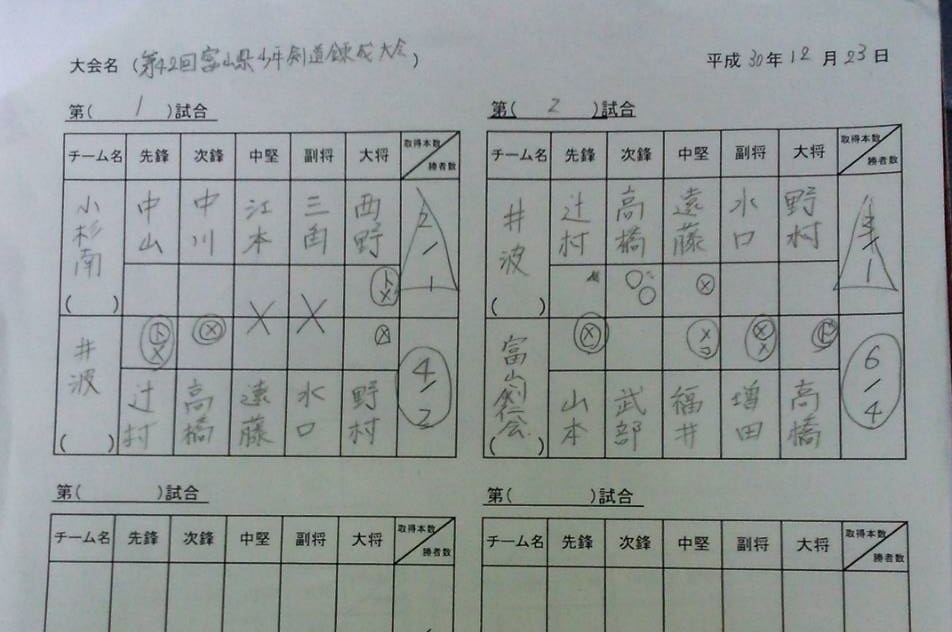 大会名（第42回富山県少年剣道錬成大会）
平成30年12月23日
第（1）試合
チーム名 先鋒 次鋒 中堅 副将 大将 取得本数 勝者数
小杉南 中山 中川 江本 三角 西野 2/1
（ ） ト メ
メ ト メ メ
井波 辻村 高橋 遠藤 水口 野村 4/2
（ ）
第（2）試合
チーム名 先鋒 次鋒 中堅 副将 大将 取得本数 勝者数
井波 辻村 高橋 遠藤 水口 野村 1
（ ） メ
メ メ コ メ メ
富山剣仁会 山本 武部 福井 増田 高橋 6/4
（ ）
第（ ）試合
チーム名 先鋒 次鋒 中堅 副将 大将 取得本数 勝者数
第（ ）試合
チーム名 先鋒 次鋒 中堅 副将 大将 取得本数 勝者数